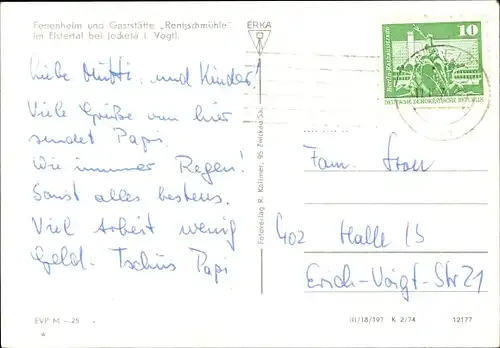 Ferienheim und Gaststätte „Rentzschmühle"
im Elstertal bei Jocketa i. Vogtl.
Liebe Mutti und Kinder!
Viele Grüße von hier
sendet Papi.
Wie immer Regen!
Sonst alles bestens.
Viel Arbeit wenig
Geld. Tschüs Papi
EVP M -,25
ERKA
Fotoverlag R. Kallmer, 95 Zwickau Sa.
10
DEUTSCHE DEMOKRATISCHE REPUBLIK
Fam.
402 Halle / S
Erich-Voigt-Str 21
III/18/197 K 2/74 12177